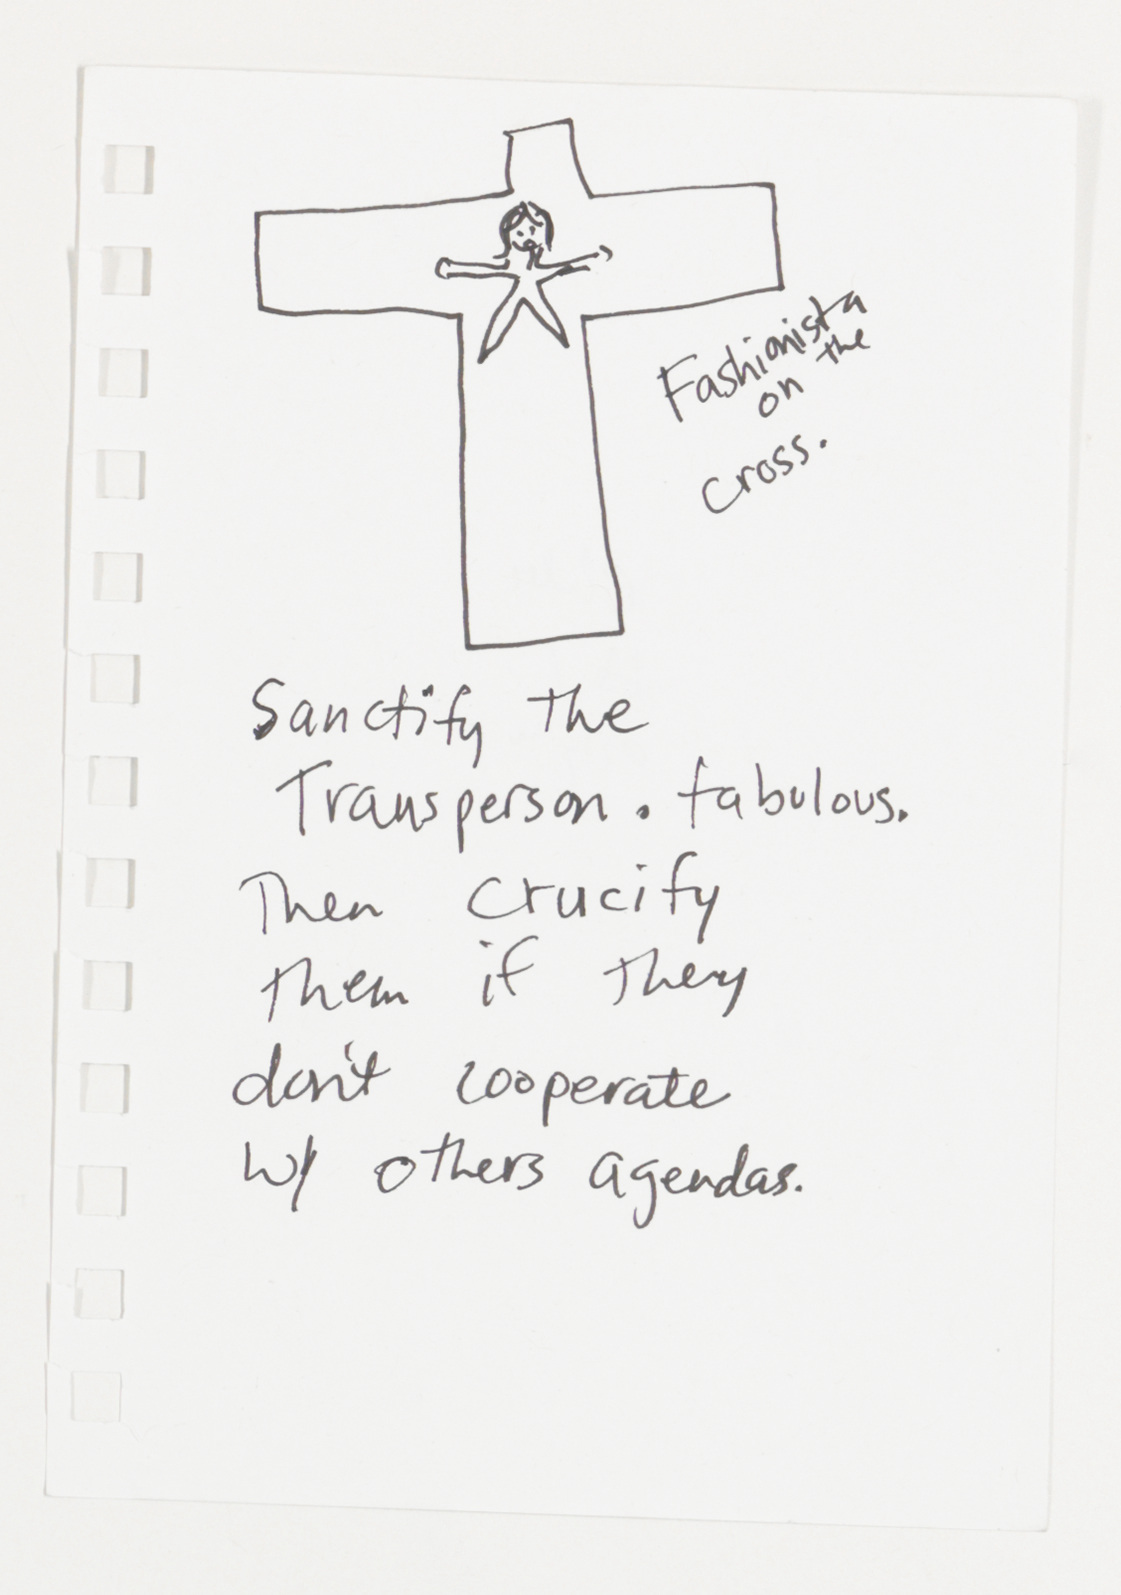 Fashionista
on the
cross.
Sanctify the
Transperson. fabulous.
Then crucify
them if they
don't cooperate
w/ others agendas.